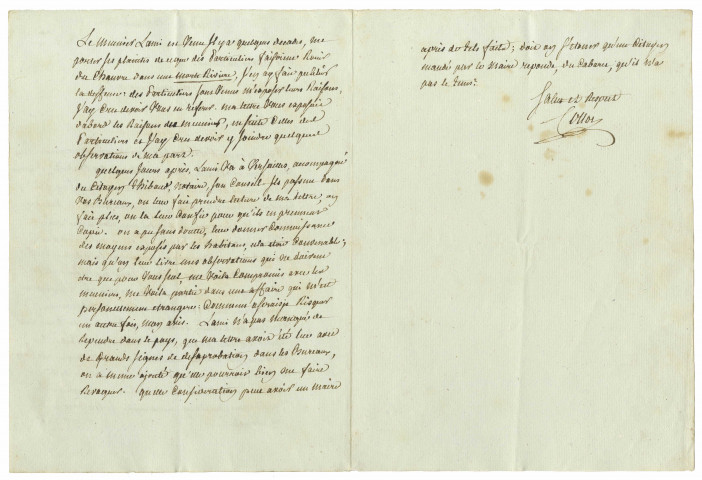 Le meunier Lami est venu il y a quelques decades, me
porter ses plaintes de ce que des Particuliers faisoient Rouir
du Chanvre dans une morte Riviere, j'en ay fait publier
la deffense. des Particuliers sont venus m'exposer leurs Raisons,
j'ay cru devoir vous en referer. ma lettre vous exposoit
dabord les Raisons du meunier, ensuite Celles des
Particuliers et j'ay cru devoir y joindre quelques
observations de ma part.
quelques jours après, Lami va à Versailles, accompagné
du Citoyen Thibault, notaire, son Conseil. ils passent dans
vos Bureaux, on leur fait prendre lecture de ma lettre, on
fait plus, on la leur Confie pour qu'ils en prennent
Copie. on a pu sans doute, leur donner Connoissance
des moyens exposés par les habitans, cela étoit Convenable;
mais qu'on leur livre mes observations qui ne doivent
être que pour vous seul, me voila Compromis avec les
meuniers, me voila partie dans une affaire qui m'est
personnellement etrangere: Comment oserois-je Risquer
un autre fois, mon avis. Lami n'a pas manqué de
Repandre dans le pays, que ma lettre avoit été lue avec
de Grands signes de desaprobation dans les Bureaux,
on a même ajouté qu'elle pourroit bien me faire
Revoquer. quelle Consideration peut avoir un maire
après de tels faits; doit on s'etonner qu'un Citoyen
mandé par le Maire reponde, du Cabaret, qu'il n'a
pas le tems.
Salut et Respect